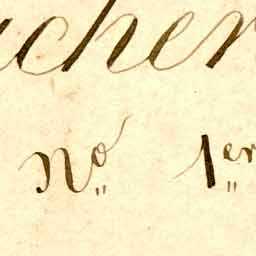 ucher
Nº 1er